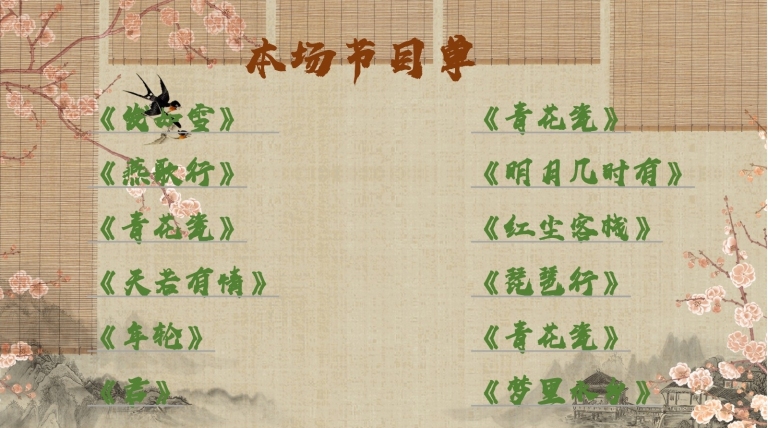 本场节目单
雪》
《燕歌行》
《青花瓷》
《天若有情》
《年轮》
《青花瓷》
《明月几时有》
《红尘客栈》
《琵琶行》
《青花瓷》
《梦里水乡》